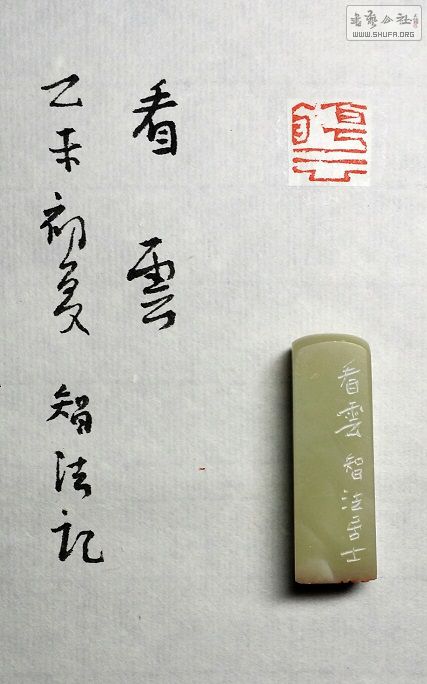 書藝公社
WWW.SHUFA.ORG
看雲
乙未初夏 智法記
看雲智法居士